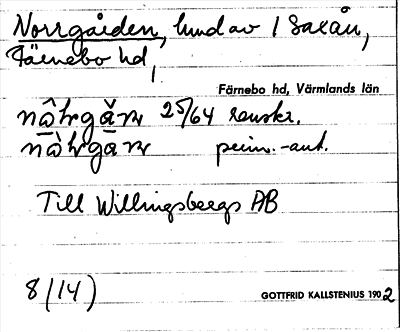 Norrgården, hmd av 1 Saxån,
Färnebo hd,
Färnebo hd, Värmlands län
25/64 renskr.
prim.-ant.
Till Willingsbergs AB
8/14)
GOTTFRID KALLSTENIUS 1902